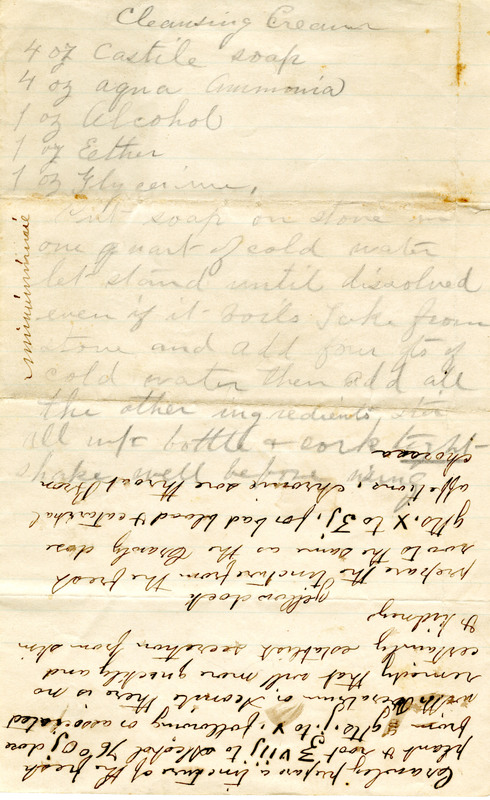 Cleansing Cream
4 oz Castile soap
4 oz aqua Ammonia
1 oz Alcohol
1 oz Eether
1 oz Glycerine,
Put soap on stove in
one quart of cold water
let stand until dissolved
even if it boils Take from
stove and add four qts of
cold water then add all
the other ingredients, Stir
all up bottle & cork tight
shake well before using
prepare a tincture of the fresh
plant & root ʒ viij to alcohol 76° Oj, dose
from gtts. j. to x, following or associated
with Veratrum or Aconite there is no
remedy that will more quickly and
certainly establish secretion from skin
& kidneys
yellow dock
prepare the Tincture from the fresh
root the same as the dose
gtts. x to ʒj, for bad blood & catarrhal
affections, chronic sore throat Bron